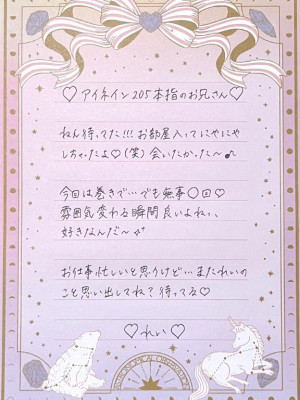 ♡アイネイン205本指のお兄さん♡
ねん待ってた!!!お部屋入ってにやにや
しちゃったよ♡(笑)会いたかった〜♪
今回は巻きで…でも無事〇回♡
雰囲気変わる瞬間良いよね、、
好きなんだ〜
お仕事忙しいと思うけど…またれいの
こと思い出してね?待ってる♡
♡れい♡